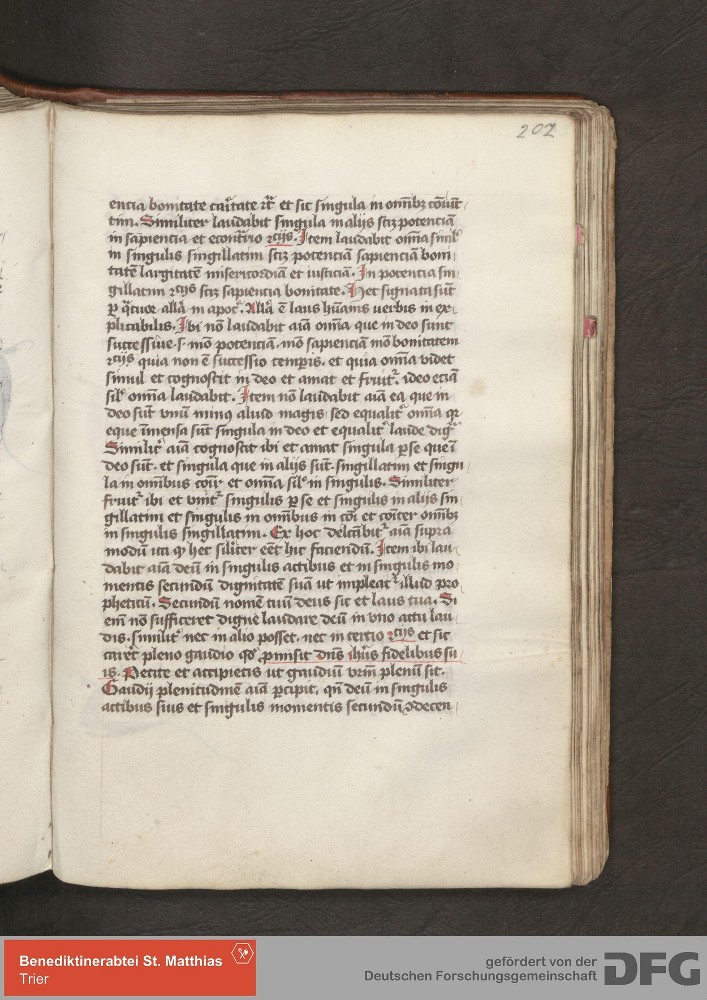 202
entia bonitate caritate ⁊c̄ et sic singula in omībꝫ cōiūc
tim. Similiter laudabit singula in alijs scꝫ potenciā
in sapiencia et econtrio ⁊cijs. Item laudabit omīa simł
in singulis singillatim scꝫ potenciā sapienciam boni
tatē largitatē misericordiā et iusticiā. In potencia sin
gillatim ⁊cijs scꝫ sapiencia bonitate. Hec signata sūt
ꝑ qͣtuor alla in apoc̓. Alla ē laus hūanis uerbis in ex
plicabilis. Ibi nō laudabit aīa omīa que in deo sunt
successiue .s. mō potenciā. mō sapienciā mō bonitatem
⁊cijs quia non ē successio temꝑis. et quia omīa videt
simul et cognoscit in deo et amat et fruit᷑. ideo eciā
sił omīa laudabit. Item nō laudabit aīa ea que in
deo sūt vnū minꝰ aliud magis sed equalit̓ omīa qꝛ
eque īmensa sūt singula in deo et equalit̓ laude dig̓
Similit̓ aīa cognoscit ibi et amat singula ꝑ se que ī
deo sūt. et singula que in alijs sūt. singillatim et singu
la in omībus cōit̓ et omīa sił in singulis. Similiter
fruit᷑ ibi et vnit᷑ singulis ꝑ se et singulis in alijs sin
gillatim et singulis in omībus in cōi et cōiter omībꝫ
in singulis singillatim. Ex hoc delectabit᷑ aīa supra
modū ita ꝙ hec siliter eēt hic faciendū. Item ibi lau
dabit aīa deū in singulis actibus et in singulis mo
mentis secundū dignitatē suā ut impleat᷑ illud pro
pheticū. Secundū nomē tuū deus sic et laus tua. Si
eīm nō sufficeret digne laudare deū in vno actu lau
dis. similit̓ nec in alio posset. nec in tercio ⁊cijs et sic
careret pleno gaudio qd̓ ꝓmisit dn̄s ih̄us fidelibus su
is. Petite et accipietis ut gaudiū vr̄m plenū sit.
Gaudij plenitudinē aīa ꝑcipit. qn̄ deū in singulis
actibus suis et singulis momentis secundū decen
Benediktinerabtei St. Matthias
Trier
gefördert von der
Deutschen Forschungsgemeinschaft
DFG